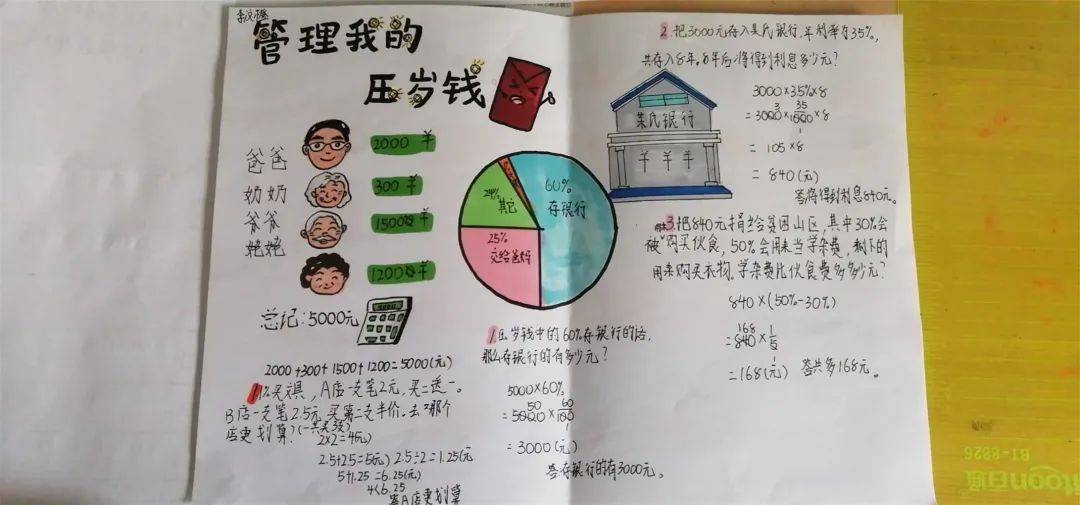 管理我的
压岁钱
爸爸 2000￥
奶奶 300￥
爷爷 1500￥
姥姥 1200￥
总记:5000元
2000+300+1500+1200=5000(元)
买文具，A店一支笔2元,买二送一。
B店一支笔2.5元,买第二支半价.去哪个
店更划算?(一共买3支)
2×2=4(元)
2.5+2.5=5(元) 2.5÷2=1.25(元
5+1.25=6.25(元)
4<6.25
答A店更划算
60%
存银行
24%
其它
25%
交给爸妈
1.压岁钱中的60%存银行的话,
那么存银行的有多少元?
5000×60%
=5000×60/100
=3000(元)
答存银行的有3000元。
2.把3000元存入某氏银行.年利率为35%,
共存入8年。8年后将得到利息多少元?
某氏银行
￥￥￥
3000×35%×8
=3000×35/1000×8
=105×8
=840(元)
答将得到利息840元。
3.把840元捐给贫困山区,其中30%会
被购买伙食,50%会用来当学杂费,剩下的
用来购买衣物.学杂费比伙食费多多少元?
840×(50%-30%)
=840×1/5
=168(元) 答共多168元。
BT-8826